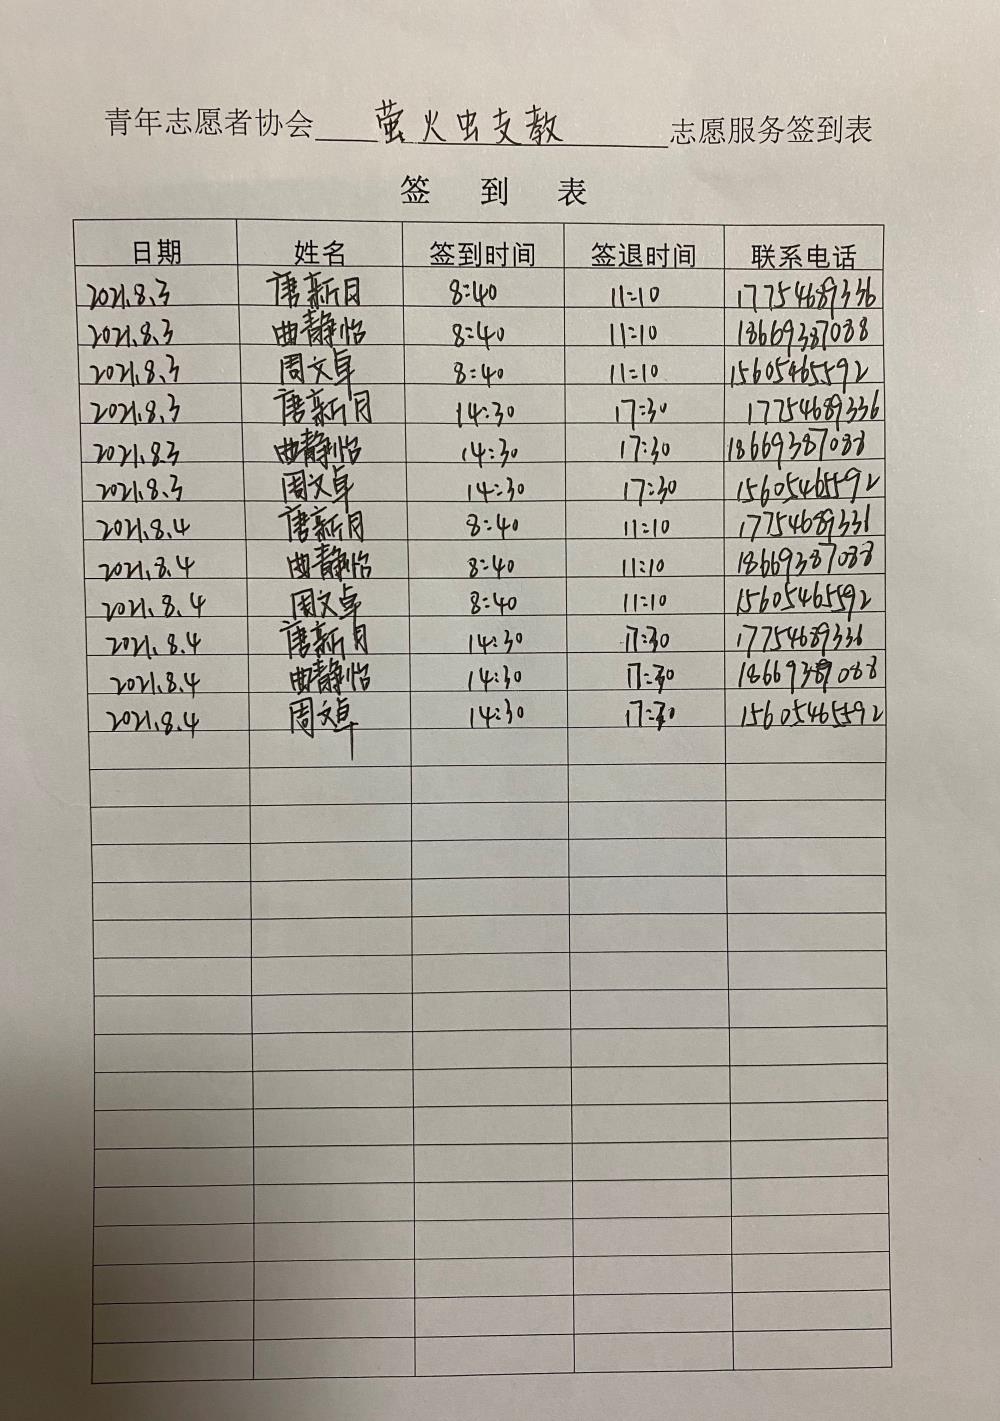 青年志愿者协会 萤火虫支教 志愿服务签到表
签 到 表
日期 姓名 签到时间 签退时间 联系电话
2021.8.3 唐新月 8:40 11:10 17754689336
2021.8.3 曲静怡 8:40 11:10 18669387088
2021.8.3 周文卓 8:40 11:10 15605465592
2021.8.3 唐新月 14:30 17:30 17754689336
2021.8.3 曲静怡 14:30 17:30 18669387088
2021.8.3 周文卓 14:30 17:30 15605465592
2021.8.4 唐新月 8:40 11:10 17754689336
2021.8.4 曲静怡 8:40 11:10 18669387088
2021.8.4 周文卓 8:40 11:10 15605465592
2021.8.4 唐新月 14:30 17:30 17754689336
2021.8.4 曲静怡 14:30 17:30 18669387088
2021.8.4 周文卓 14:30 17:30 15605465592